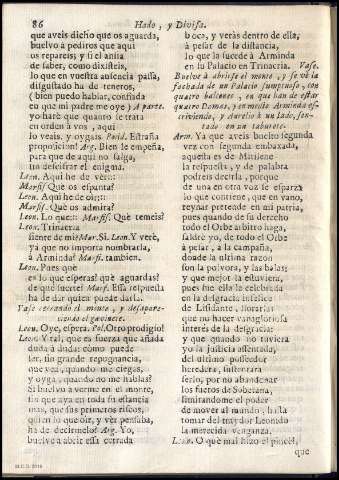 86 Hado, y Divisa.
que aveis dicho que os aguarda,
buelvo à pediros que aqui
os repareis; y si el ansia
de saber, como dixisteis,
lo que en vuestra ausencia passa,
disgustado ha de teneros,
(bien puedo hablar, confiada
en que mi padre me oye) A parte.
yo harè que quanto se trata
en orden à vos, aqui
lo veais, y oygais. Estraña
proposicion! Arg. Bien le empeña,
para que de aqui no salga,
sin descifrar el enigma.
Leon. Aqui he de vèr::
Marfis. Què os espanta?
Leon. Aqui he de oir::
Marfis. Què os admira?
Leon. Lo que:: Marfis. Què temeis?
Leon. Trinacria
siente de mi? Mar. Si. Leon. Y verè,
ya que no importa nombrarla,
à Arminda? Marfis. tambien.
Leon. Pues què
es lo que esperas? què aguardas?
de que suerte? Marf. Essa respuesta
ha de dar quien puede darla.
Vase cerrando el monte, y desapareciendo
Leon. Oye, espera. Pol. Otro prodigio!
Leon. Y tal, que es fuerça que añada
duda à duda: còmo puede
ser, sin grande repugnancia,
que vea, quando me ciegas,
y oyga, quando no me hablas?
Si buelvo à verme en el monte,
sin que aya en toda su estancia
mas, que sus primeros riscos,
quien lo que oir, y ver pensaba,
ha de decirmelo? Arg. Yo,
buelve à abrir essa cerrada
boca, y veràs dentro de ella,
à pesar de la distancia,
lo que la sucede à Arminda
en su Palacio en Trinacria. Vase.
Buelve à abrirse el monte, y se vè la
fachada de un Palacio sumptuoso, con
quatro balcones, en que han de estàr
quatro Damas, y en medio Arminda escriviendo,
y Aurelio à un lado, sentado
en un taburete.
Arm. Ya que aveis buelto segunda
vez con segunda embaxada,
aquesta es de Mitilene
la respuesta, y de palabra
podreis decirla, porque
de una en otra voz se esparza
lo que contiene, que en vano,
reynar pretende en mi patria,
pues quando de su derecho
todo el Orbe arbitro haga,
saldrè yo, de todo el Orbe
à pesar, à la campaña,
donde la ultima razon
son la polvora, y las balas;
y que mejor la estuviera,
pues fue ella la celebrada
en la desgracia infelice
de Lisidante, llorar
que no hacer vanagloriosa
interès de la desgracia:
y que quando no tuviera
yo la justicia assentada,
del ultimo posseedor
heredera, sustentara
serlo, por no abandonar
los fueros de Soberana,
simitandome el poder
de mover al mundo, hasta
tomar del traydor Leonido
la merecida venganza.
Leon. O què mal hizo el pincèl,
que